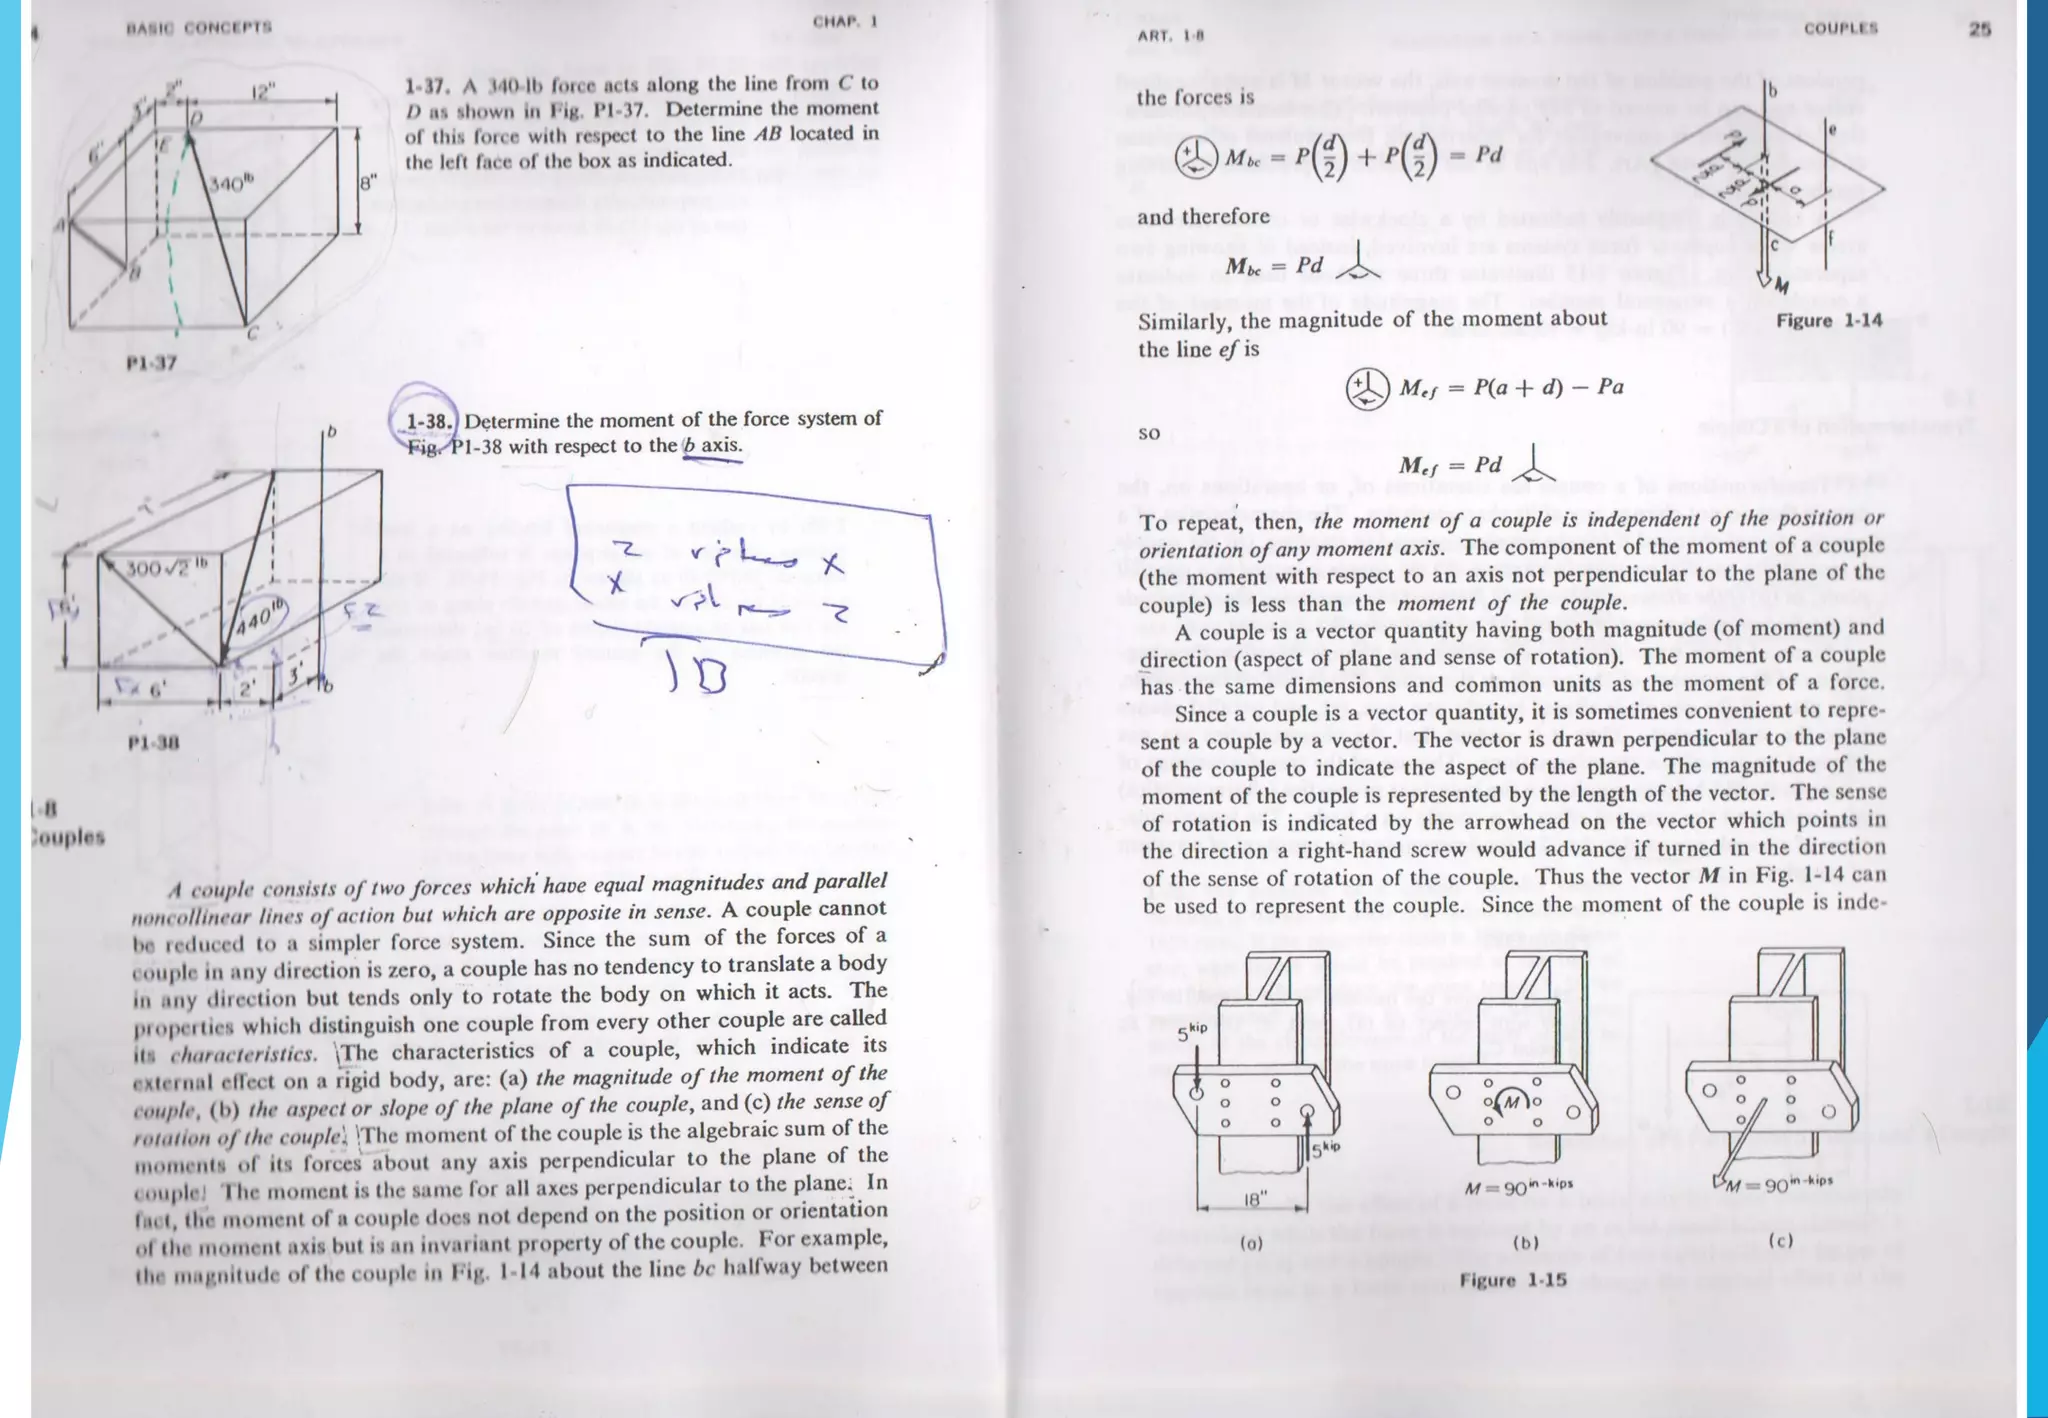 BASIC CONCEPTS
CHAP. 1
1-37. A 340-lb force acts along the line from C to
D as shown in Fig. P1-37. Determine the moment
of this force with respect to the line AB located in
the left face of the box as indicated.
2"
12"
3"
6"
D
E
340lb
8"
A
B
C
P1-37
1-38. Determine the moment of the force system of
Fig. P1-38 with respect to the b axis.
b
300√2 lb
440lb
6'
2'
3'
b
P1-38
1-8
Couples
A couple consists of two forces which have equal magnitudes and parallel
noncollinear lines of action but which are opposite in sense. A couple cannot
be reduced to a simpler force system. Since the sum of the forces of a
couple in any direction is zero, a couple has no tendency to translate a body
in any direction but tends only to rotate the body on which it acts. The
properties which distinguish one couple from every other couple are called
its characteristics. The characteristics of a couple, which indicate its
external effect on a rigid body, are: (a) the magnitude of the moment of the
couple, (b) the aspect or slope of the plane of the couple, and (c) the sense of
rotation of the couple. The moment of the couple is the algebraic sum of the
moments of its forces about any axis perpendicular to the plane of the
couple. The moment is the same for all axes perpendicular to the plane. In
fact, the moment of a couple does not depend on the position or orientation
of the moment axis but is an invariant property of the couple. For example,
the magnitude of the couple in Fig. 1-14 about the line bc halfway between
ART. 1-8
COUPLES
25
the forces is
M_bc = P(d/2) + P(d/2) = Pd
and therefore
M_bc = Pd
Similarly, the magnitude of the moment about
the line ef is
M_ef = P(a + d) − Pa
so
M_ef = Pd
b
e
c
f
M
Figure 1-14
To repeat, then, the moment of a couple is independent of the position or
orientation of any moment axis. The component of the moment of a couple
(the moment with respect to an axis not perpendicular to the plane of the
couple) is less than the moment of the couple.
A couple is a vector quantity having both magnitude (of moment) and
direction (aspect of plane and sense of rotation). The moment of a couple
has the same dimensions and common units as the moment of a force.
Since a couple is a vector quantity, it is sometimes convenient to repre-
sent a couple by a vector. The vector is drawn perpendicular to the plane
of the couple to indicate the aspect of the plane. The magnitude of the
moment of the couple is represented by the length of the vector. The sense
of rotation is indicated by the arrowhead on the vector which points in
the direction a right-hand screw would advance if turned in the direction
of the sense of rotation of the couple. Thus the vector M in Fig. 1-14 can
be used to represent the couple. Since the moment of the couple is inde-
5kip
5kip
18"
(a)
M
M = 90in-kips
(b)
M = 90in-kips
(c)
Figure 1-15